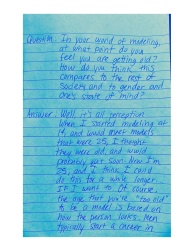 Question: In your world of modeling,
at what point do you
feel you are getting old?
How do you think this
compares to the rest of
society and to gender and
one's state of mind?
Answer: Well, it's all perception
When I started modeling at
14, and would meet models
that were 25, I thought
they were old and would
probably quit soon. Now I'm
25, and I think I could
do this for a while longer
if I want to. Of course,
the age that you're "too old"
to be a model is based on
how the person looks. Men
typically start a career in